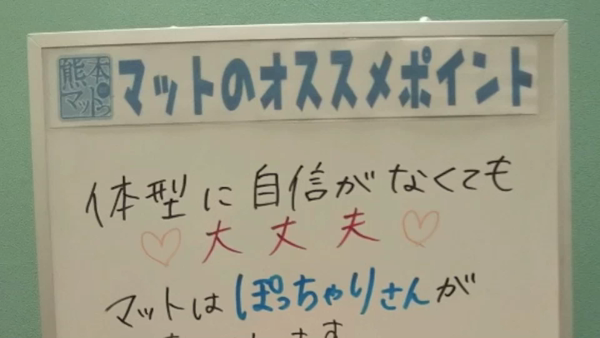 熊本マット
マットのオススメポイント
体型に自信がなくても
♡大丈夫♡
マットはぽっちゃりさんが